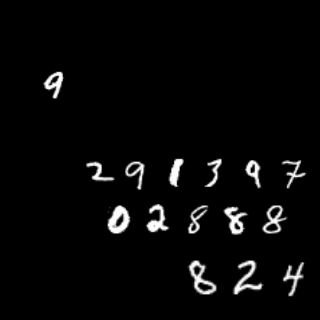 9
2 9 1 3 9 7
0 2 8 8 8
8 2 4